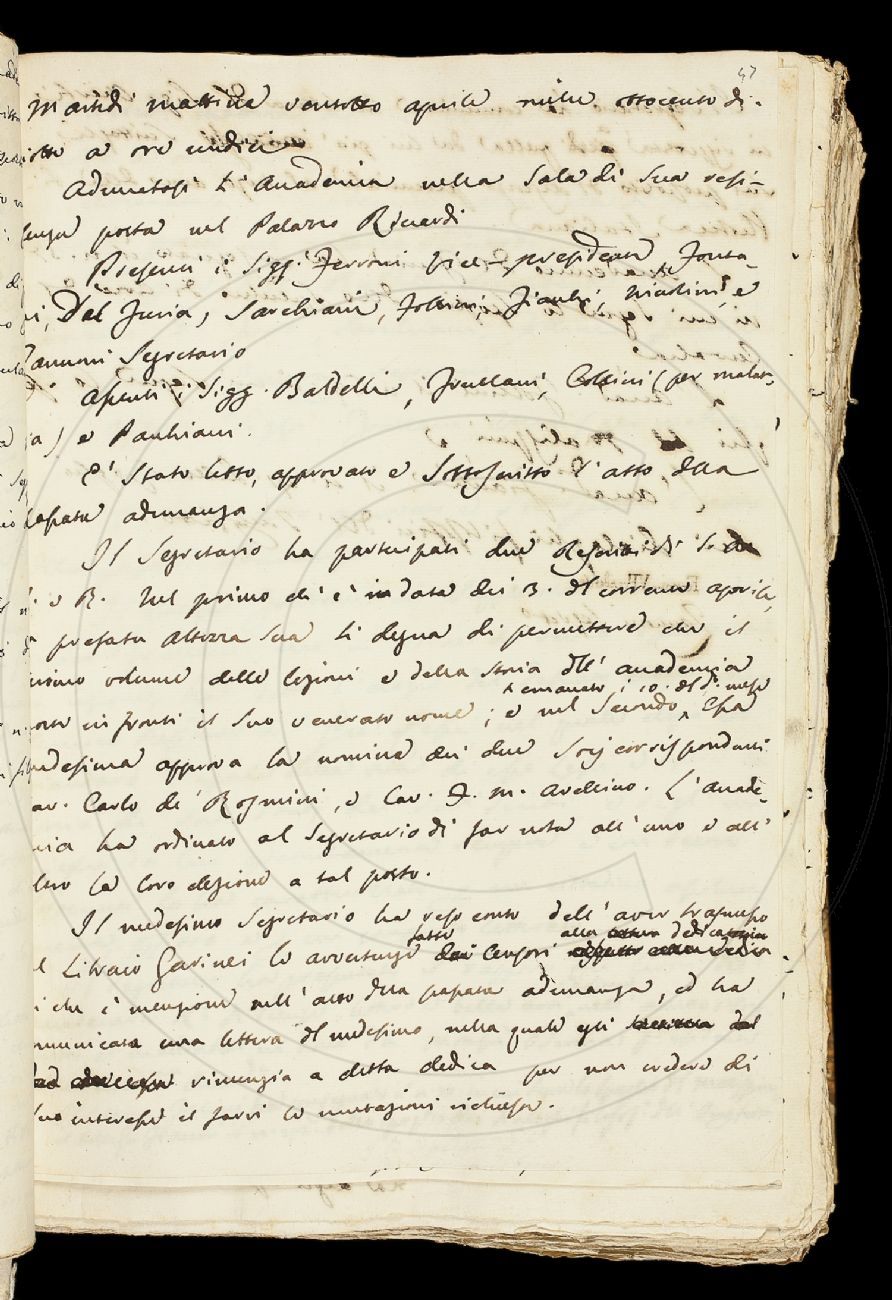 47
Martedì mattina ventotto aprile mille ottocento di-
iotto a ore undici
Adunatasi l'Accademia nella Sala di Sua resi-
denza posta nel Palazzo Ricardi
Presenti i Sigg. Ferroni Vice-presidente, Fonta-
ni, Del Furia, Sarchiani, Follini, Fiacchi, Niccolini, e
Zannoni Segretario
Assenti i Sigg. Baldelli, Frullani, Collini (per malat-
ia) e Pauliani.
È stato letto, approvato e sottoscritto l'atto della
passata adunanza.
Il Segretario ha partecipati due Rescritti di S.
I. e R. Nel primo ch'è in data dei 3. del corrente aprile,
prefata Altezza Sua si degna di permettere che il
primo volume delle lezioni e della storia dell'accademia
porti in fronti il suo venerato nome; e nel Secondo, Essa
emanato i 10. del d.º mese
medesima approva la nomina dei due Socj corrispondenti
av. Carlo de' Rosmini, e Cav. F. M. Avellino. L'Accade-
mia ha ordinato al Segretario di far nota all'uno e all'
altro la loro elezione a tal posto.
Il medesimo Segretario ha reso conto dell'aver trasmesso
al Libraio Garinei le avvertenze fatte dai Censori alla dedica
di che è menzione nell'atto della passata adunanza, ed ha
comunicata una lettera del medesimo, nella quale egli
rinunzia a detta dedica per non credere di
suo interesse il farvi le mutazioni richieste.